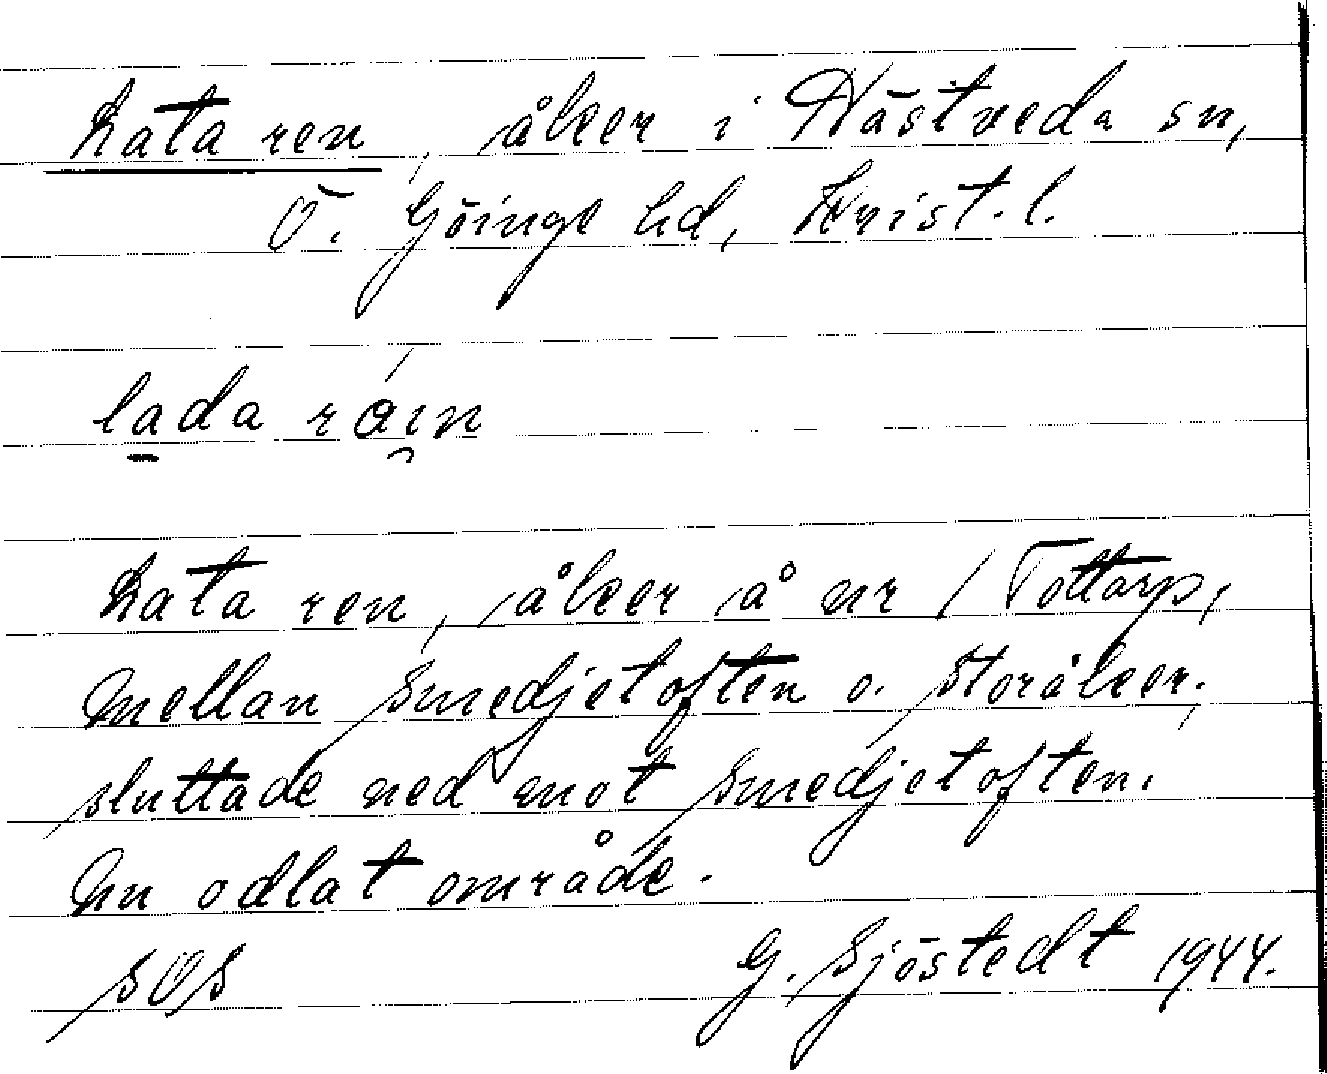 Lata ren, åker i Hästveda sn,
Ö. Göinge hd, Krist. l.
lada ráin
Lata ren, åker å nr 1 Tottarp,
mellan Smedjetoften o. Storåker;
sluttade ned mot Smedjetoften.
Nu odlat område.
SOS G. Sjöstedt 1944.